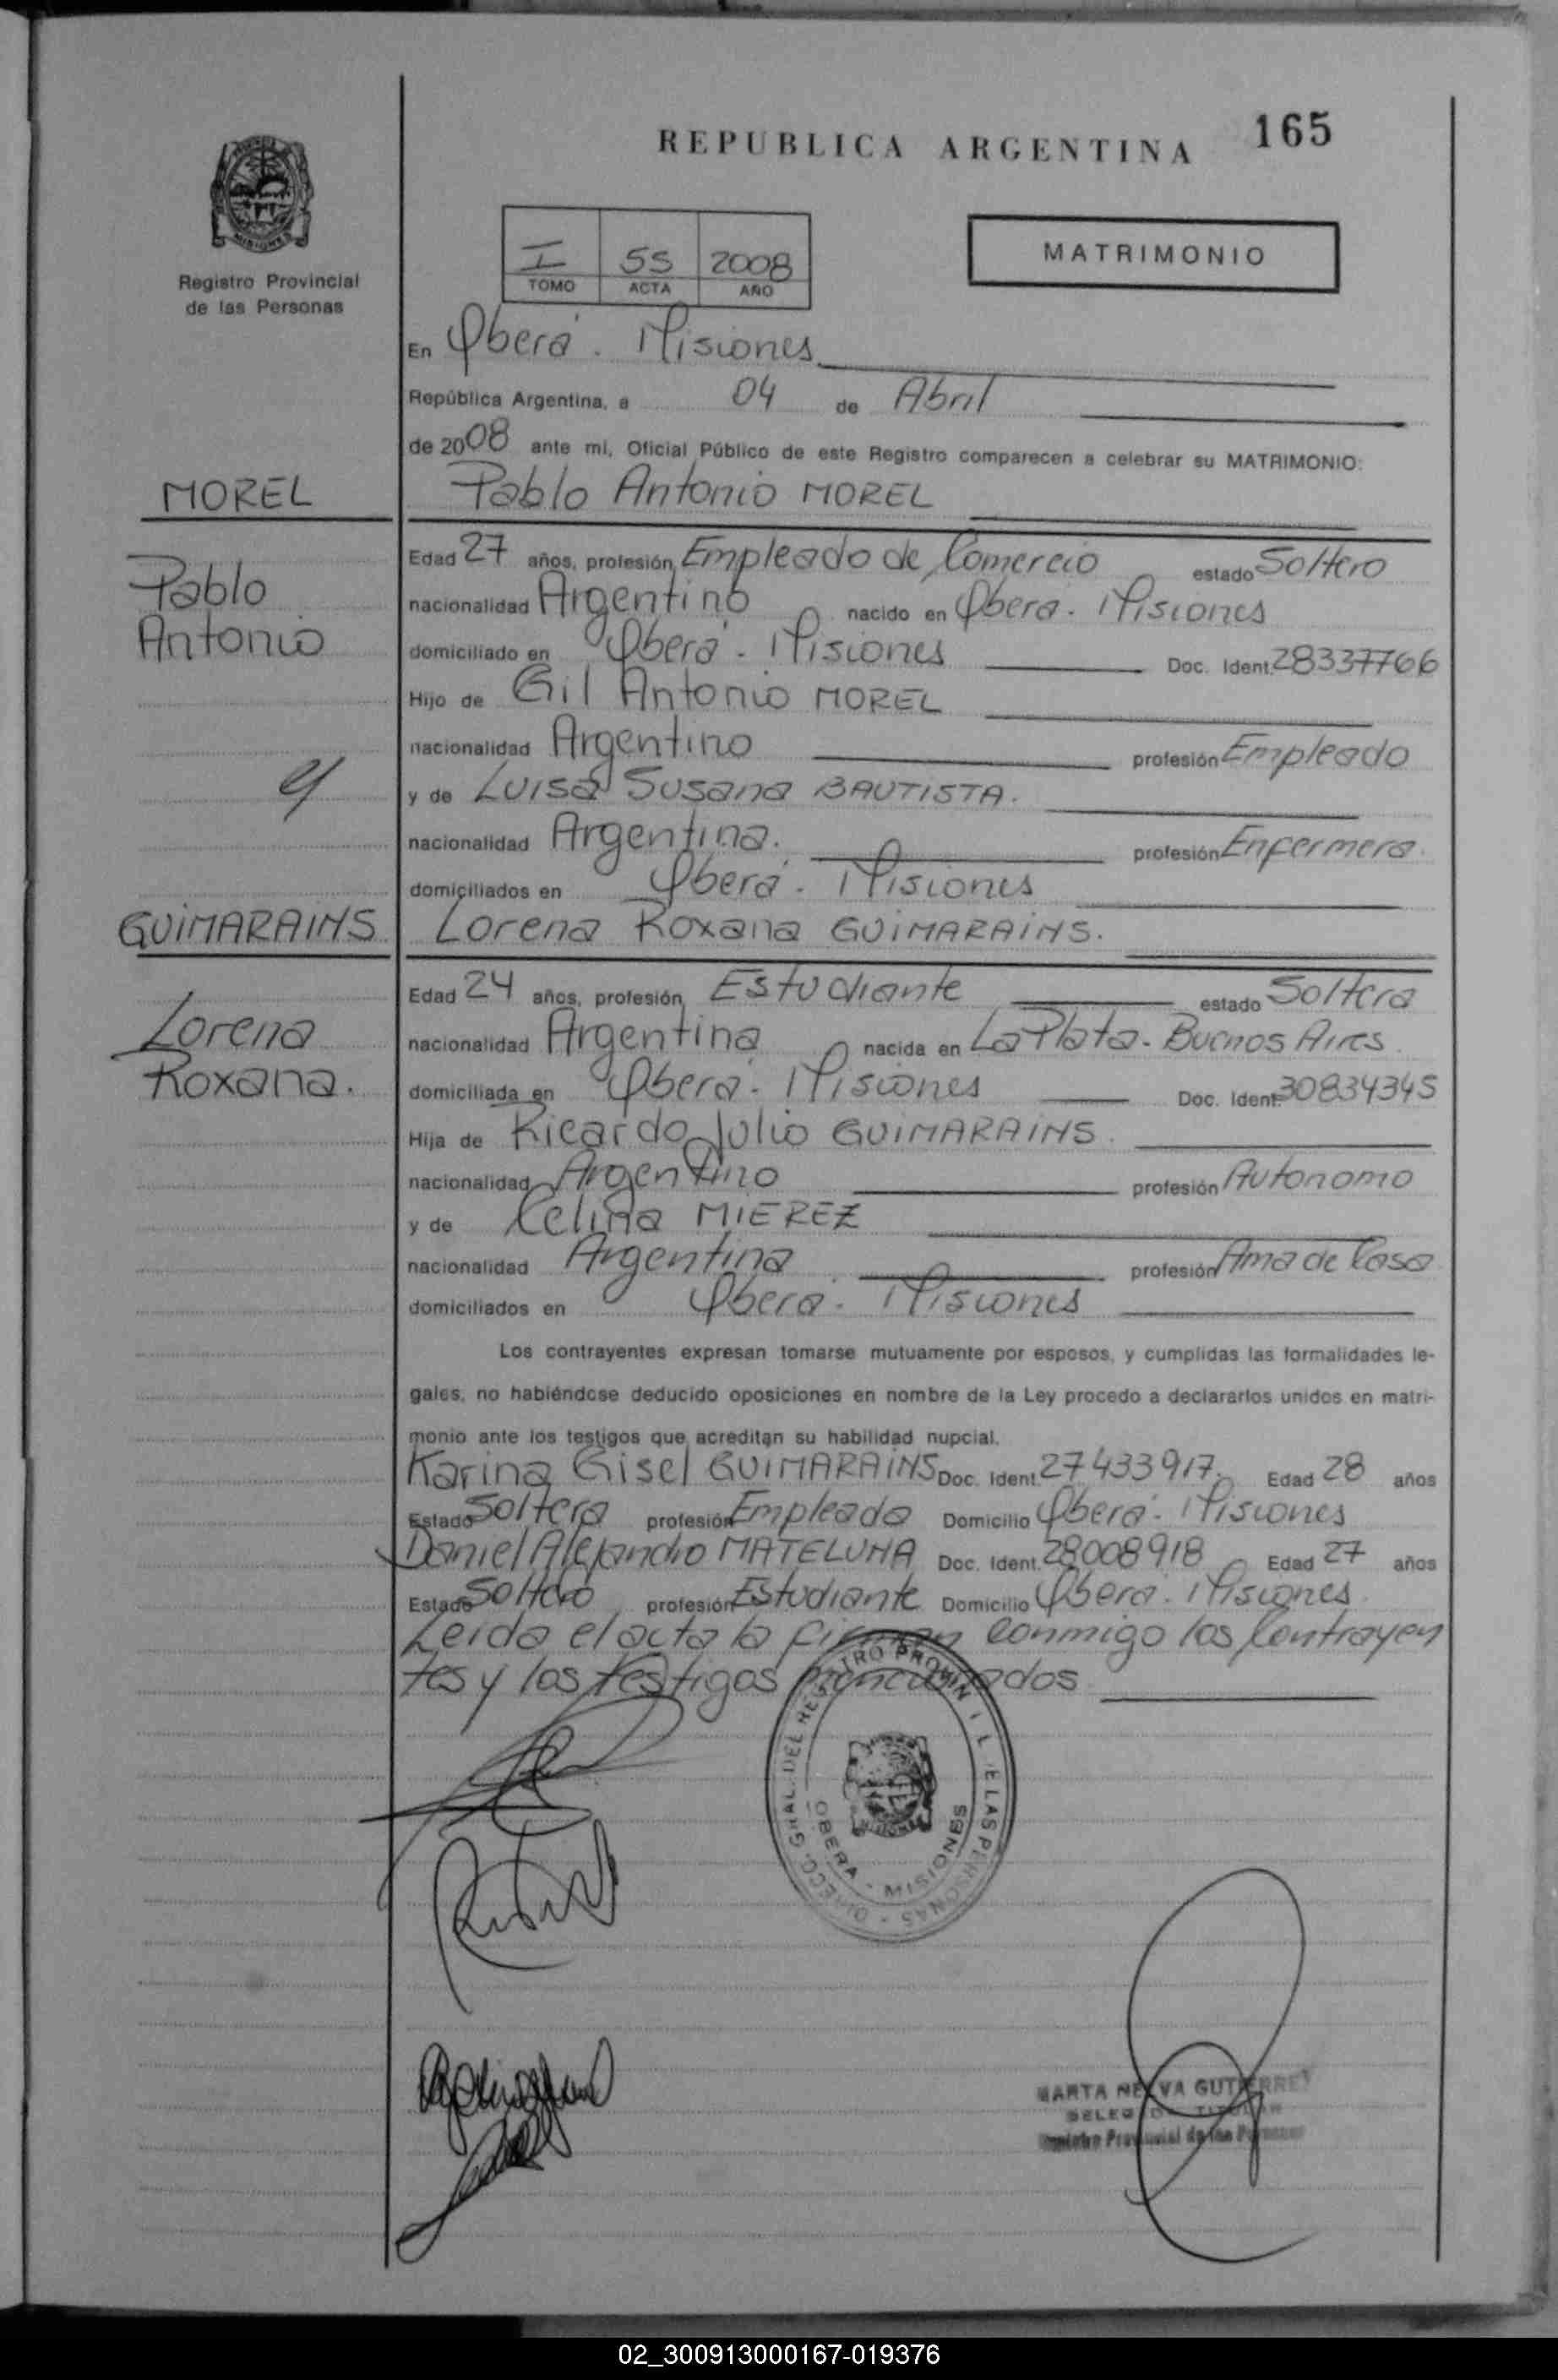 REPUBLICA ARGENTINA 165
MISIONES
Registro Provincial
de las Personas
I 55 2008
TOMO ACTA AÑO
MATRIMONIO
En Oberá. Misiones
República Argentina, a 04 de Abril
de 2008 ante mí, Oficial Público de este Registro comparecen a celebrar su MATRIMONIO:
MOREL
Pablo Antonio MOREL
Pablo
Antonio
Edad 27 años, profesión Empleado de Comercio estado Soltero
nacionalidad Argentino nacido en Oberá. Misiones
domiciliado en Oberá. Misiones Doc. Ident. 28337766
Hijo de Gil Antonio MOREL
nacionalidad Argentino profesión Empleado
y de Luisa Susana BAUTISTA.
nacionalidad Argentina. profesión Enfermera.
domiciliados en Oberá. Misiones
GUIMARAINS
Lorena Roxana GUIMARAINS.
Lorena
Roxana.
Edad 24 años, profesión Estudiante estado Soltera
nacionalidad Argentina nacida en La Plata. Buenos Aires
domiciliada en Oberá. Misiones Doc. Ident. 30834345
Hija de Ricardo Julio GUIMARAINS.
nacionalidad Argentino profesión Autonomo
y de Celina MIEREZ
nacionalidad Argentina profesión Ama de Casa
domiciliados en Oberá. Misiones
Los contrayentes expresan tomarse mutuamente por esposos, y cumplidas las formalidades le-
gales, no habiéndose deducido oposiciones en nombre de la Ley procedo a declararlos unidos en matri-
monio ante los testigos que acreditan su habilidad nupcial.
Karina Gisel GUIMARAINS Doc. Ident. 27433917. Edad 28 años
Estado Soltera profesión Empleada Domicilio Oberá. Misiones
Daniel Alejandro MATELUNA Doc. Ident. 28008918 Edad 27 años
Estado Soltero profesión Estudiante Domicilio Oberá. Misiones
Leida el acta la firman conmigo los Contrayen
tes y los testigos mencionados
DIRECC. GRAL. DEL REGISTRO PROVINCIAL DE LAS PERSONAS
OBERA - MISIONES
MARTA GUTIERREZ
TITULAR
Registro Provincial de las Personas
02_300913000167-019376